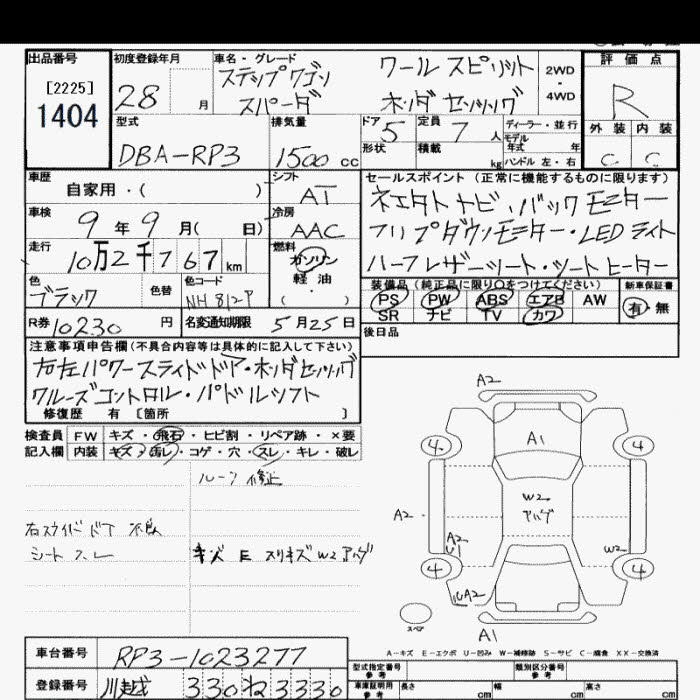 出品番号
[2225]
1404
初度登録年月
28 月
車名・グレード
ステップワゴン クールスピリット
スパーダ ホンダセンシング
2WD
・
4WD
評価点
R
外装 内装
C C
型式
DBA-RP3
排気量
1500 cc
ドア 5
定員 7 人
形状
積載 kg
ディーラー・並行
モデル年式 年
ハンドル 左・右
車歴
自家用・( )
シフト
AT
車検
9年9月( 日)
冷房
AAC
走行
10万2千767 km
燃料
ガソリン
軽油
( ・ )
色
ブラック
色替
色コード
NH812P
R券 10230 円
名変通知期限 5月25日
セールスポイント (正常に機能するものに限ります)
ネエタト ナビ・バックモニター
フリップダウンモニター・LEDライト
ハーフレザーシート・シートヒーター
装備品(純正品に限り○をつけてください)
新車保証書
PS PW ABS エアB AW
SR ナビ TV カワ
有・無
後日品
注意事項申告欄(不具合内容等は具体的に記入して下さい)
右左パワースライドドア・ホンダセンシング
クルーズコントロル・パドルシフト
修復歴 有 [箇所 ]
検査員 FW キズ・飛石・ヒビ割・リペア跡・×要
記入欄 内装 キズ・汚レ・コゲ・穴・スレ・キレ・破レ
ルーフ修正
右スライドドア 不良
シートスレ
キズ E スリキズ W2 アゲ
A2
A1
4 4
W2
アゲ
A2
A2
U1
W2
4 4
A2
スペア
A1
A-キズ E-エクボ U-凹み W-補修跡 S-サビ C-腐食 XX-交換済
車台番号 RP3-1023277
登録番号 川越 330 ね 3330
型式指定番号
参考
類別区分番号
参考
車庫証明用
参考
長さ cm 幅 cm 高さ cm